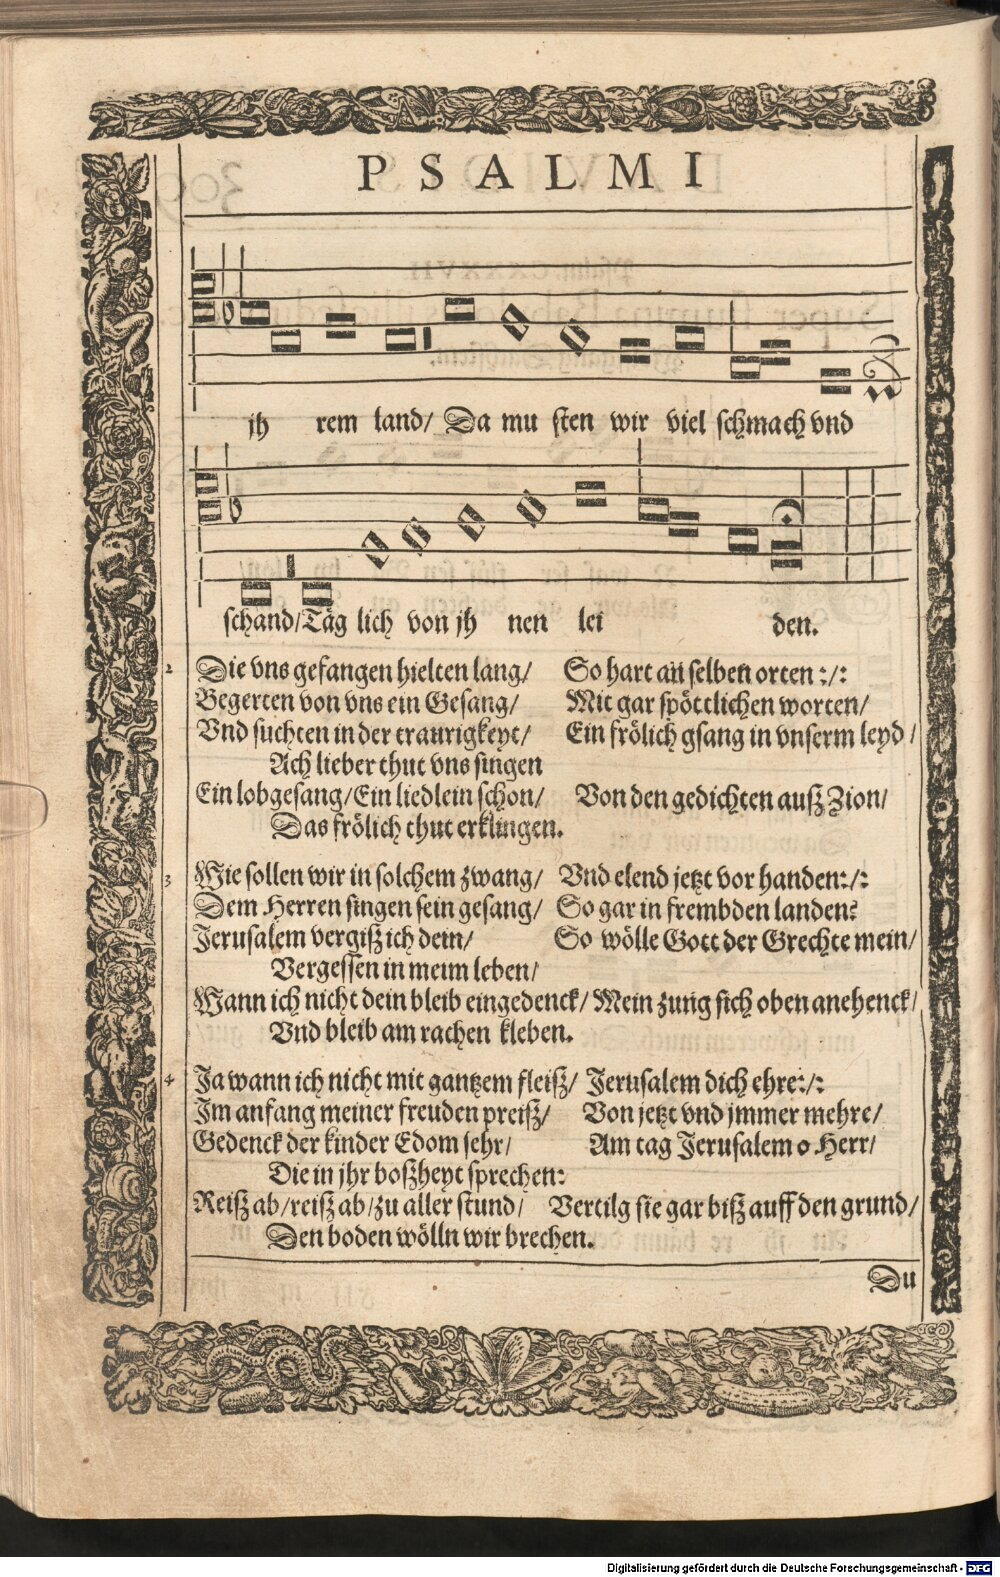 PSALMI
jh rem land/ Da mu sten wir viel schmach vnd
schand/Täg lich von jh nen lei den.
2 Die vns gefangen hielten lang/ So hart an selben orten :/:
Begerten von vns ein Gesang/ Mit gar spöttlichen worten/
Vnd suchten in der traurigkeyt/ Ein frölich gsang in vnserm leyd/
Ach lieber thut vns singen
Ein lobgesang/Ein liedlein schon/ Von den gedichten auß Zion/
Das frölich thut erklingen.
3 Wie sollen wir in solchem zwang/ Vnd elend jetzt vor handen:/:
Dem Herren singen sein gesang/ So gar in frembden landen?
Jerusalem vergiß ich dein/ So wölle Gott der Grechte mein/
Vergessen in meim leben/
Wann ich nicht dein bleib eingedenck/ Mein zung sich oben anehenck/
Vnd bleib am rachen kleben.
4 Ja wann ich nicht mit gantzem fleiß/ Jerusalem dich ehre:/:
Im anfang meiner freuden preiß/ Von jetzt vnd jmmer mehre/
Gedenck der kinder Edom sehr/ Am tag Jerusalem o Herr/
Die in jhr boßheyt sprechen:
Reiß ab/reiß ab/zu aller stund/ Vertilg sie gar biß auff den grund/
Den boden wölln wir brechen.
Du
Digitalisierung gefördert durch die Deutsche Forschungsgemeinschaft - DFG